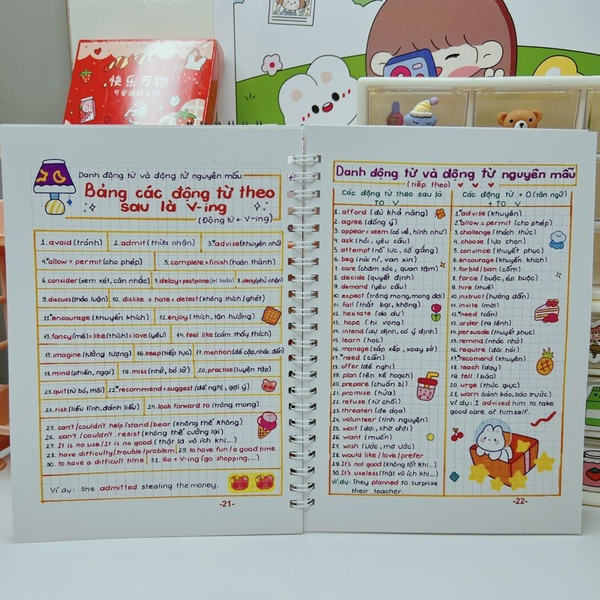 快乐万物
Danh động từ và động từ nguyên mẫu
Bảng các động từ theo
sau là V-ing
(Động từ + V-ing)
1. avoid (tránh) 2. admit (thừa nhận) 3.*advise (khuyên nhủ)
4.*allow = permit (cho phép) 5. complete = finish (hoàn thành)
6. consider (xem xét, cân nhắc) 7. delay = postpone (trì hoãn) 8. deny (phủ nhận)
9. discuss (thảo luận) 10. dislike = hate = detest (không thích, ghét)
11.*encourage (khuyến khích) 12. enjoy (thích, tận hưởng)
13. fancy (mê) = like (thích) = love (yêu) 14. feel like (cảm thấy thích)
15. imagine (tưởng tượng) 16. keep (tiếp tục) 17. mention (đề cập, nhắc đến)
18. mind (phiền, ngại) 19. miss (nhớ, bỏ lỡ) 20. practise (luyện tập)
21. quit (từ bỏ, thôi) 22.*recommend = suggest (đề nghị, gợi ý)
23. risk (liều lĩnh, đánh liều) 24. look forward to (trông mong)
25. can't/couldn't help/stand/bear (không thể không)
26. can't/couldn't resist (không thể cưỡng lại)
27. It is no use/It is no good (thật là vô ích khi...)
28. have difficulty/trouble/problem 29. to have fun/a good time
30. to have a difficult time 31. Go + V-ing (go shopping,...)
Ví dụ: She admitted stealing the money.
-21-
Danh động từ và động từ nguyên mẫu
(tiếp theo)
Các động từ theo sau là
TO V
1. afford (đủ khả năng)
2. agree (đồng ý)
3. appear = seem (có vẻ, hình như)
4. ask (hỏi, yêu cầu)
5. attempt (nỗ lực, cố gắng)
6. beg (nài nỉ, van xin)
7. care (chăm sóc, quan tâm)
8. decide (quyết định)
9. demand (yêu cầu)
10. expect (trông mong, mong đợi)
11. fail (thất bại, không)
12. hesitate (do dự)
13. hope (hi vọng)
14. intend (dự định, có ý định)
15. learn (học)
16. manage (sắp xếp, xoay sở)
17.*need (cần)
18. offer (đề nghị)
19. plan (lên kế hoạch)
20. prepare (chuẩn bị)
21. promise (hứa)
22. refuse (từ chối)
23. threaten (đe dọa)
24. volunteer (tình nguyện)
25. wait (đợi, chờ đợi)
26. want (muốn)
27. wish (ước, mơ ước)
28. would like/love/prefer
29. It's not good (không tốt khi...)
30. It's useless (thật vô ích khi...)
Ví dụ: They planned to surprise
their teacher.
Các động từ + O (tân ngữ)
+ TO V
1.*advise (khuyên)
2.*allow = permit (cho phép)
3. challenge (thách thức)
4. choose (lựa chọn)
5. convince (thuyết phục)
6. encourage (khuyến khích)
7. forbid/ban (cấm)
8. force (buộc, ép buộc)
9. hire (thuê)
10. instruct (hướng dẫn)
11. invite (mời)
12.*need (cần)
13. order (ra lệnh)
14. persuade (thuyết phục)
15. remind (nhắc nhở)
16. require (đòi hỏi)
17.*recommend (khuyên)
18. teach (dạy)
19. tell (bảo)
20. urge (thúc giục)
21. warn (cảnh báo, báo trước)
Ví dụ: I advised him to take
good care of himself.
-22-